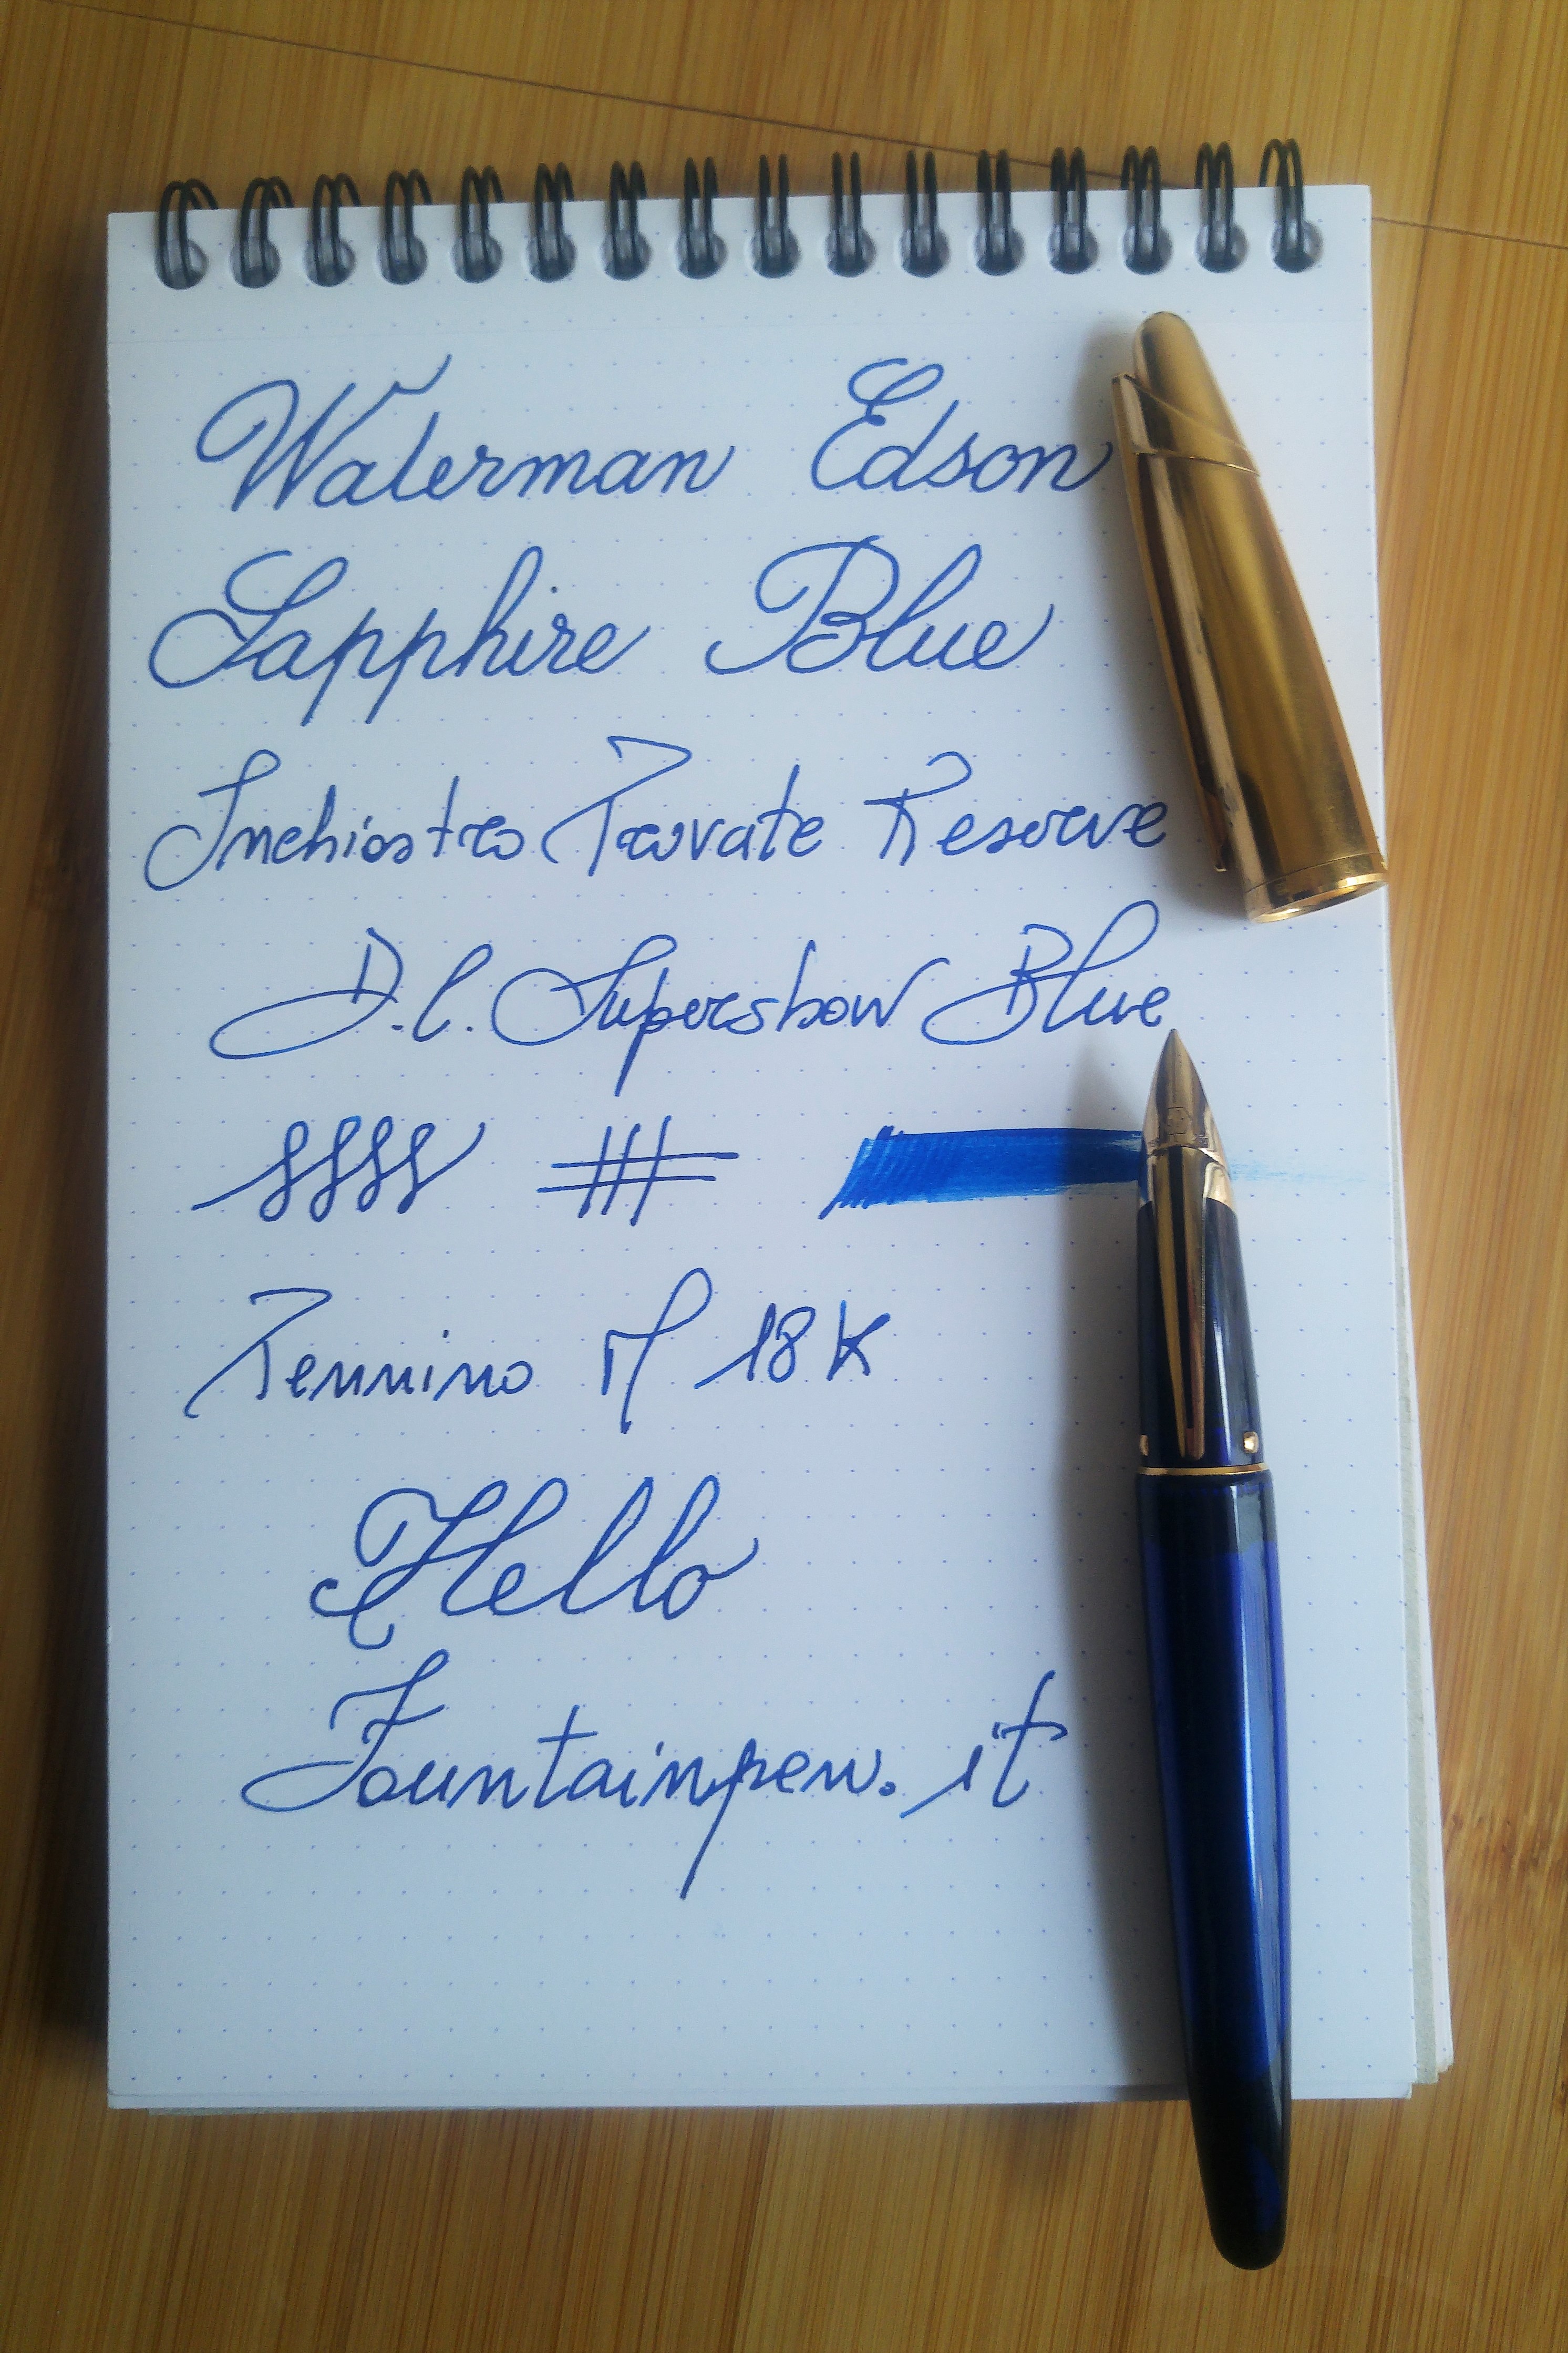 Waterman Edson
Sapphire Blue
Inchiostro Private Reserve
D.C. Supershow Blue
Pennino M 18K
Hello
Fountainpen.it